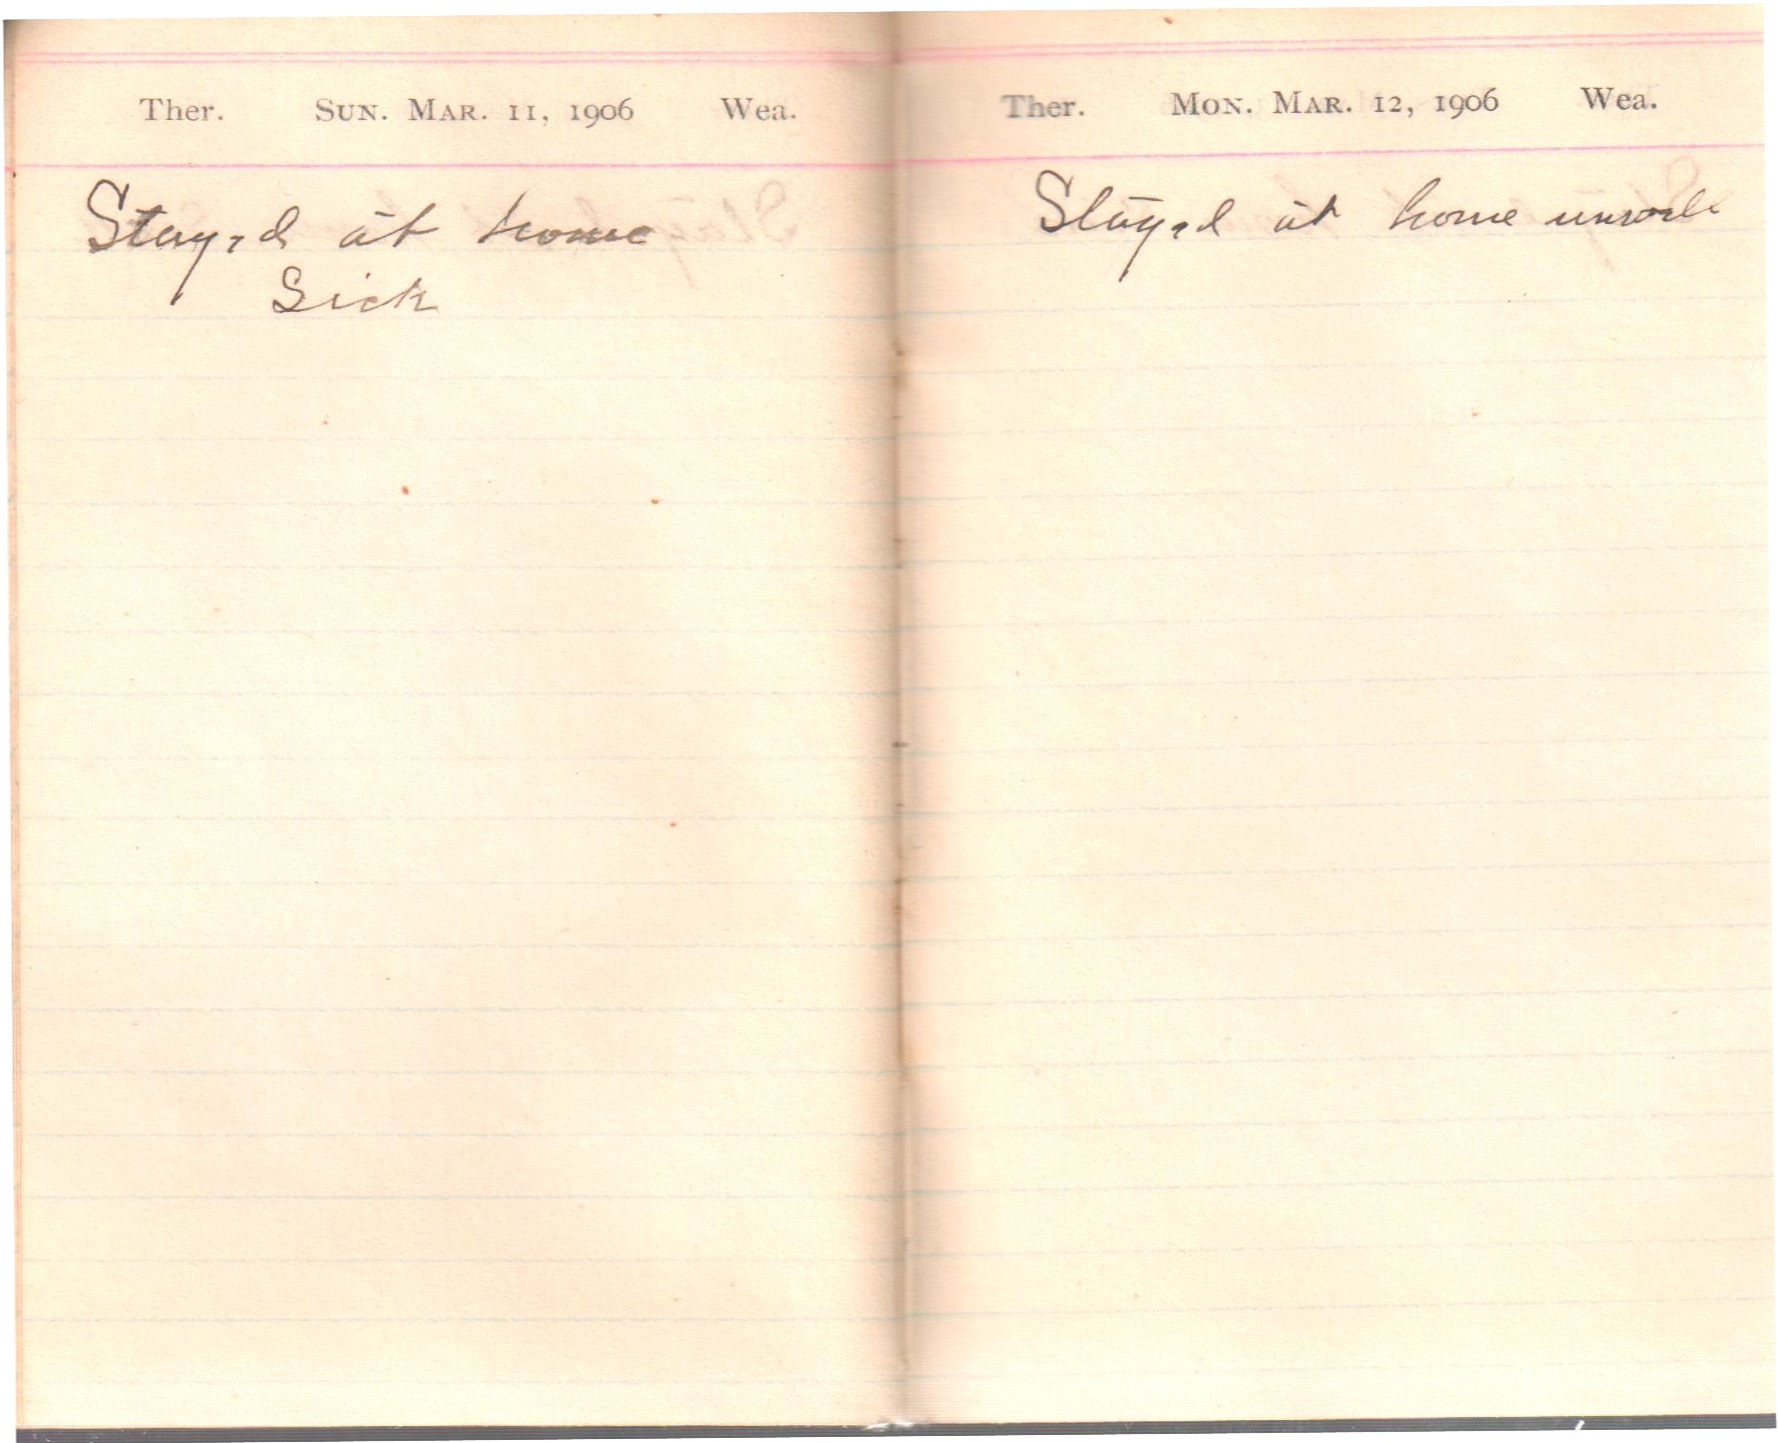 Ther. Sun. Mar. 11, 1906 Wea.
Stayed at home
Sick
Ther. Mon. Mar. 12, 1906 Wea.
Stayed at home unwell